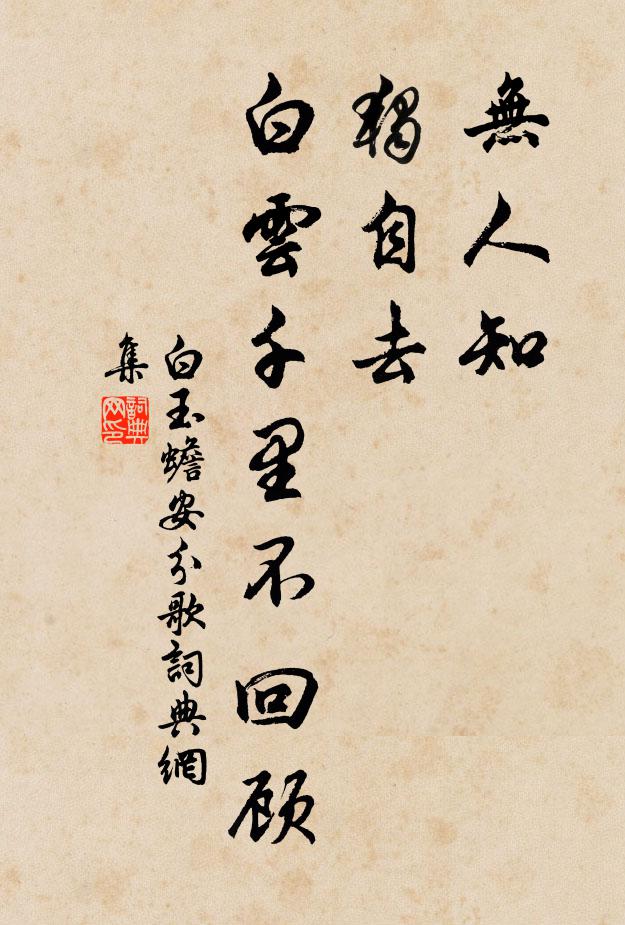 無人知
獨自去
白雲千里不回顧
白玉蟾安分歌詞典網
集
詞典
网印